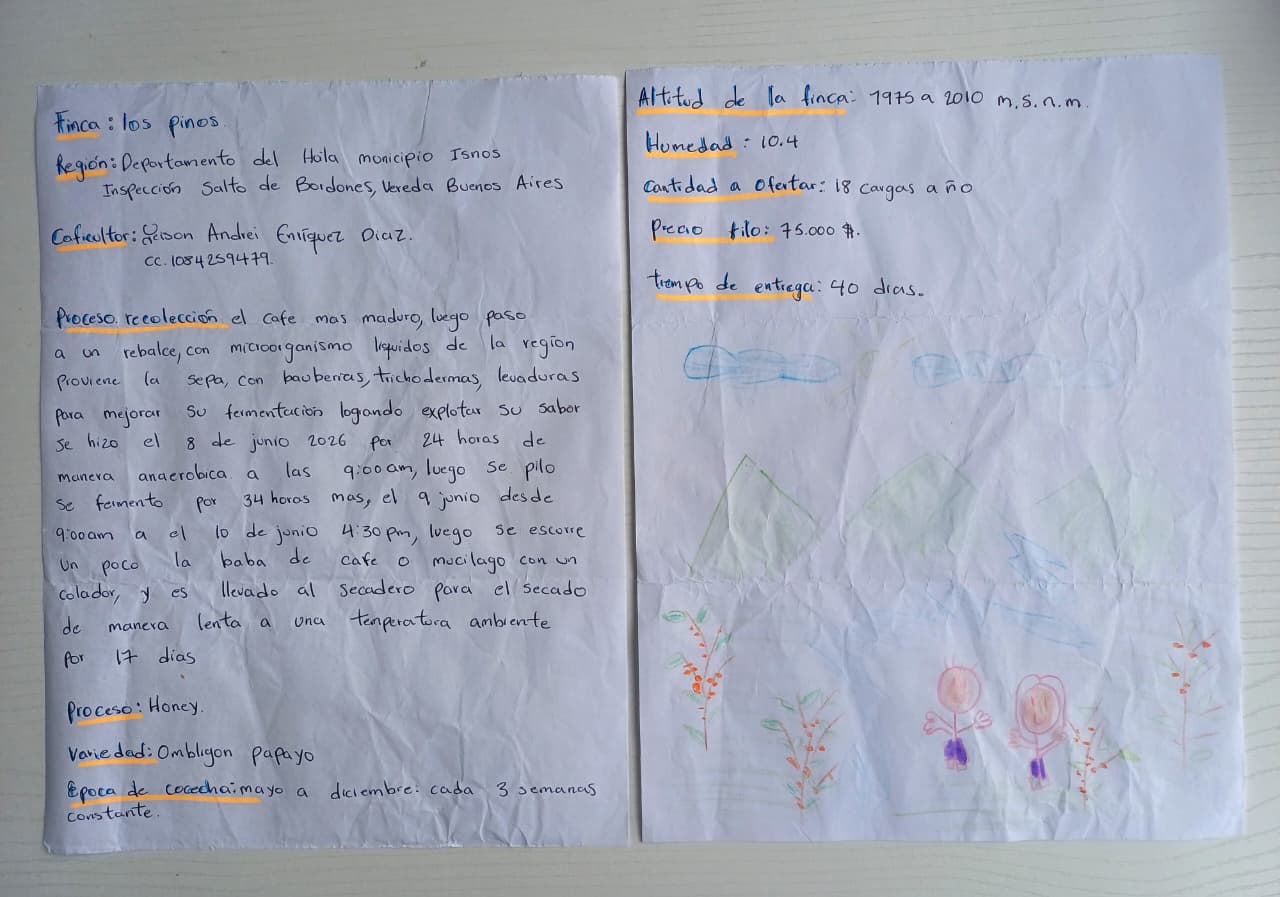 Finca: los pinos.
Región: Departamento del Huila municipio Isnos
Inspección Salto de Bordones, Vereda Buenos Aires
Caficultor: Andrei Enríquez Diaz.
cc. 1084259479.
Proceso, recolección el cafe mas maduro, luego paso
a un rebalce, con microorganismo liquidos de la región
proviene la sepa, con bauberias, trichodermas, levaduras
para mejorar su fermentación logando explotar su sabor
se hizo el 8 de junio 2026 por 24 horas de
manera anaerobica a las 9:00am, luego se pilo
se fermento por 34 horas mas, el 9 junio desde
9:00am a el 10 de junio 4:30 pm, luego se escorre
un poco la baba de cafe o mucilago con un
colador, y es llevado al secadero para el secado
de manera lenta a una temperatura ambiente
por 17 dias
Proceso: Honey.
Variedad: Ombligon papayo
Epoca de cocecha: mayo a diciembre: cada 3 semanas
constante.
Altitud de la finca: 1975 a 2010 m.s.n.m.
Humedad: 10.4
Cantidad a Ofertar: 18 cargas año
Precio kilo: 75.000 $.
tiempo de entrega: 40 dias.